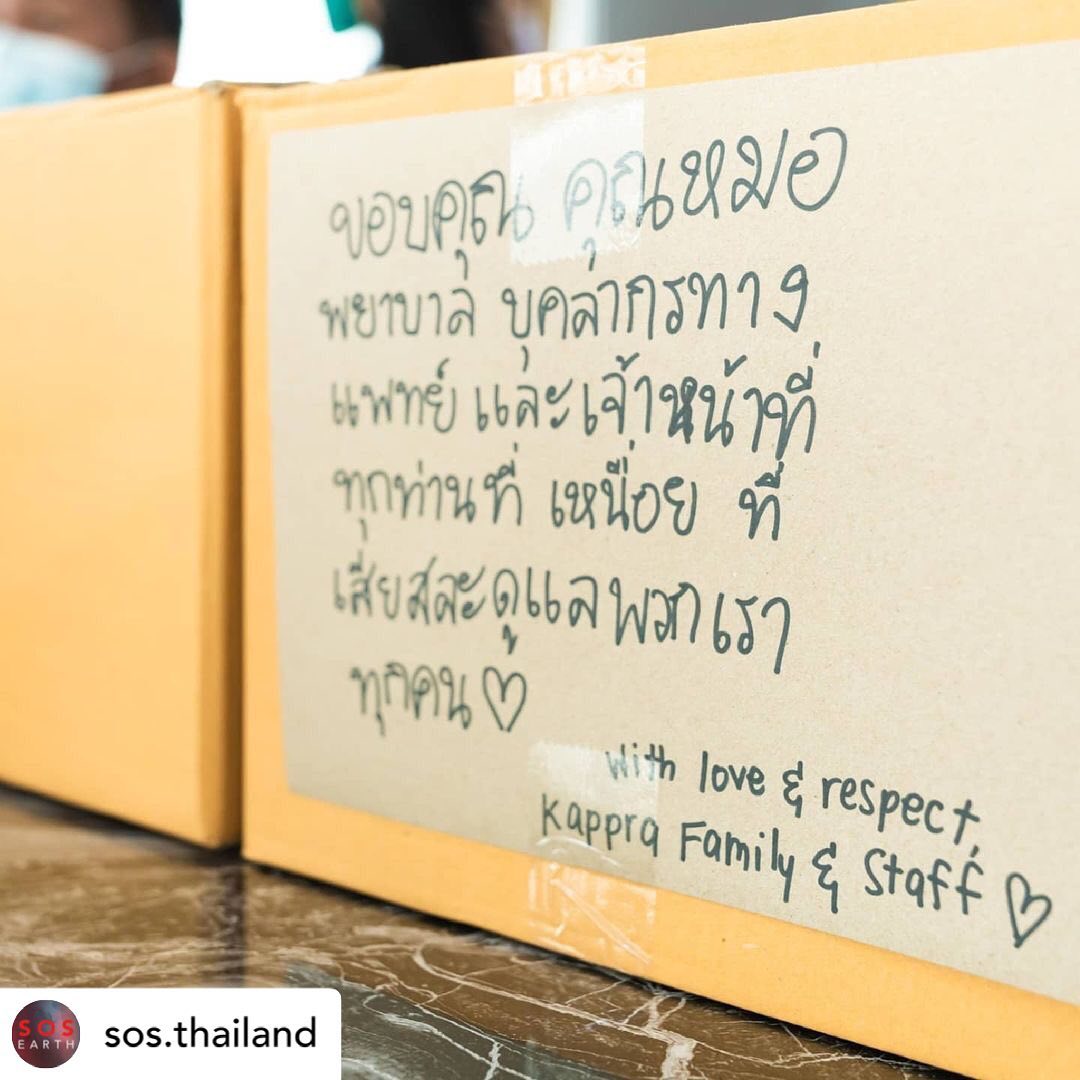 ขอบคุณ คุณหมอ
พยาบาล บุคลากรทาง
แพทย์ และเจ้าหน้าที่
ทุกท่านที่ เหนื่อย ที่
เสียสละดูแลพวกเรา
ทุกคน ♡
with love & respect,
Kappra Family & Staff ♡
SOS
EARTH
sos.thailand